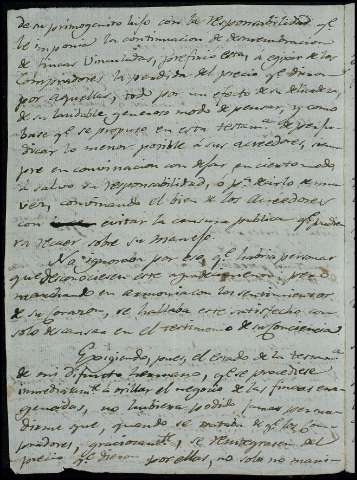 de su primogenito hijo con la responsabilidad qᵉ
le imponia la continuacion de desmembracion
de fincas Vinculadas, prefirió esta, á q.e por de los
Compradores la perdida del precio qᵉ dieron
por aquellas; todo por un efecto de su delicadeza,
de su laudable y generoso modo de pensar, y como
base qᵉ se propuso en esta testamᵃ de perju-
dicar lo menos posible á sus acreedores, siem
pre en convinacion con dejar en cierto modo
á salvo su responsabilidad, o pʳ decirlo de una
véz, convinando el bien de los acreedores
con evitar la censura publica qᵉ pudie
ra recaer sobre su manejo.
No ignorava por eso qᵉ habria personas
que desconociesen este agradecimiento; pero
marchando en armonia con los sentimientos
de su corazon, se hallaba este satisfecho con
solo descansar en el testimonio de su conciencia
Exigiendo, pues, el estado de la testamᵃ
de mi Difunto hermano, qᵉ se procediese
inmediatamᵗᵉ á orillar el negocio de las fincas ena
genadas, no hubiera podido jamas persua
dirme que, quando se trataba de qᵉ los Com
pradores, graciosamᵗᵉ, se reintegrasen del
precio qᵉ dieron por ellas, no solo no manis